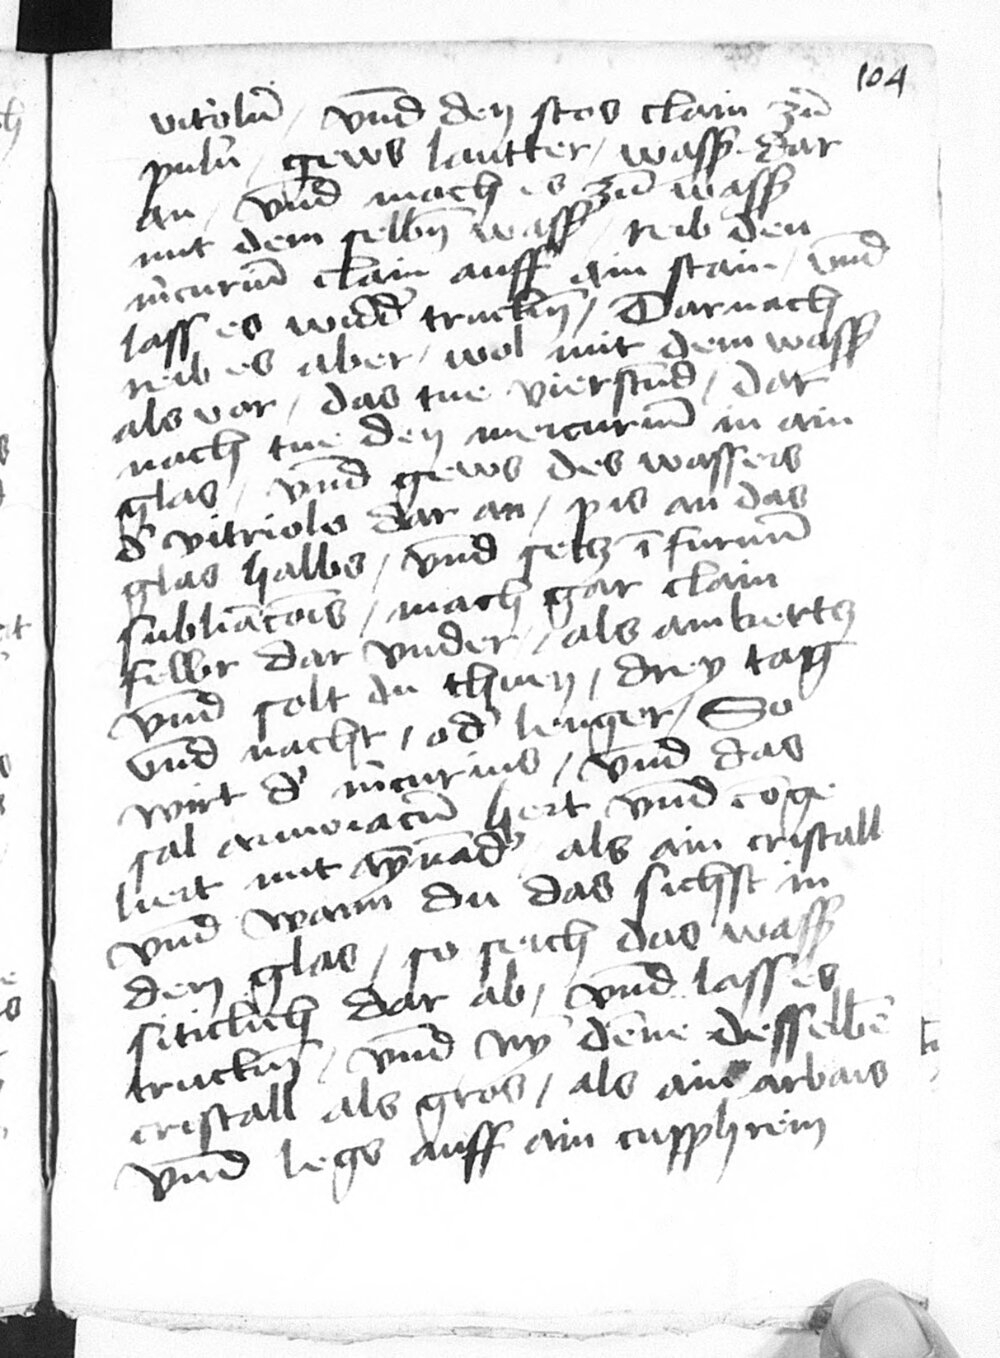 104
vitolū / vnd den stos clain zū
pulū / gews lautter / wasß dar
an / vnd mach es zū wasß
mit dem selbn̄ wasß / reib den
m̄curiū clain auff ain stain / vnd
lass es wid' truckn̄ / Darnach
reib es aber / wol mit dem wasß
als vor / das tue vierstūd / dar
nach tue den mercuriū in ain
glas / vnd gews des wassers
d' vitriols dar an / pis an das
glas halbs / vnd setz ī furnū
subliāc̄ōis / mach gar clain
fewr dar vnder / als
vnd solt du thuen / drey tag
vnd nacht / od' lenger / So
wirt d' m̄curius / vnd das
sal armoiacū hert vnd cōge
liert mit als ain cristall
vnd wann du das sichst in
dem glas / so seich das wasß
siticlich dar ab / vnd lass es
truckn̄ / vnd ny' dēne desselbē
cristall als gros / als ain arbais
vnd legs auff ain cupphrein